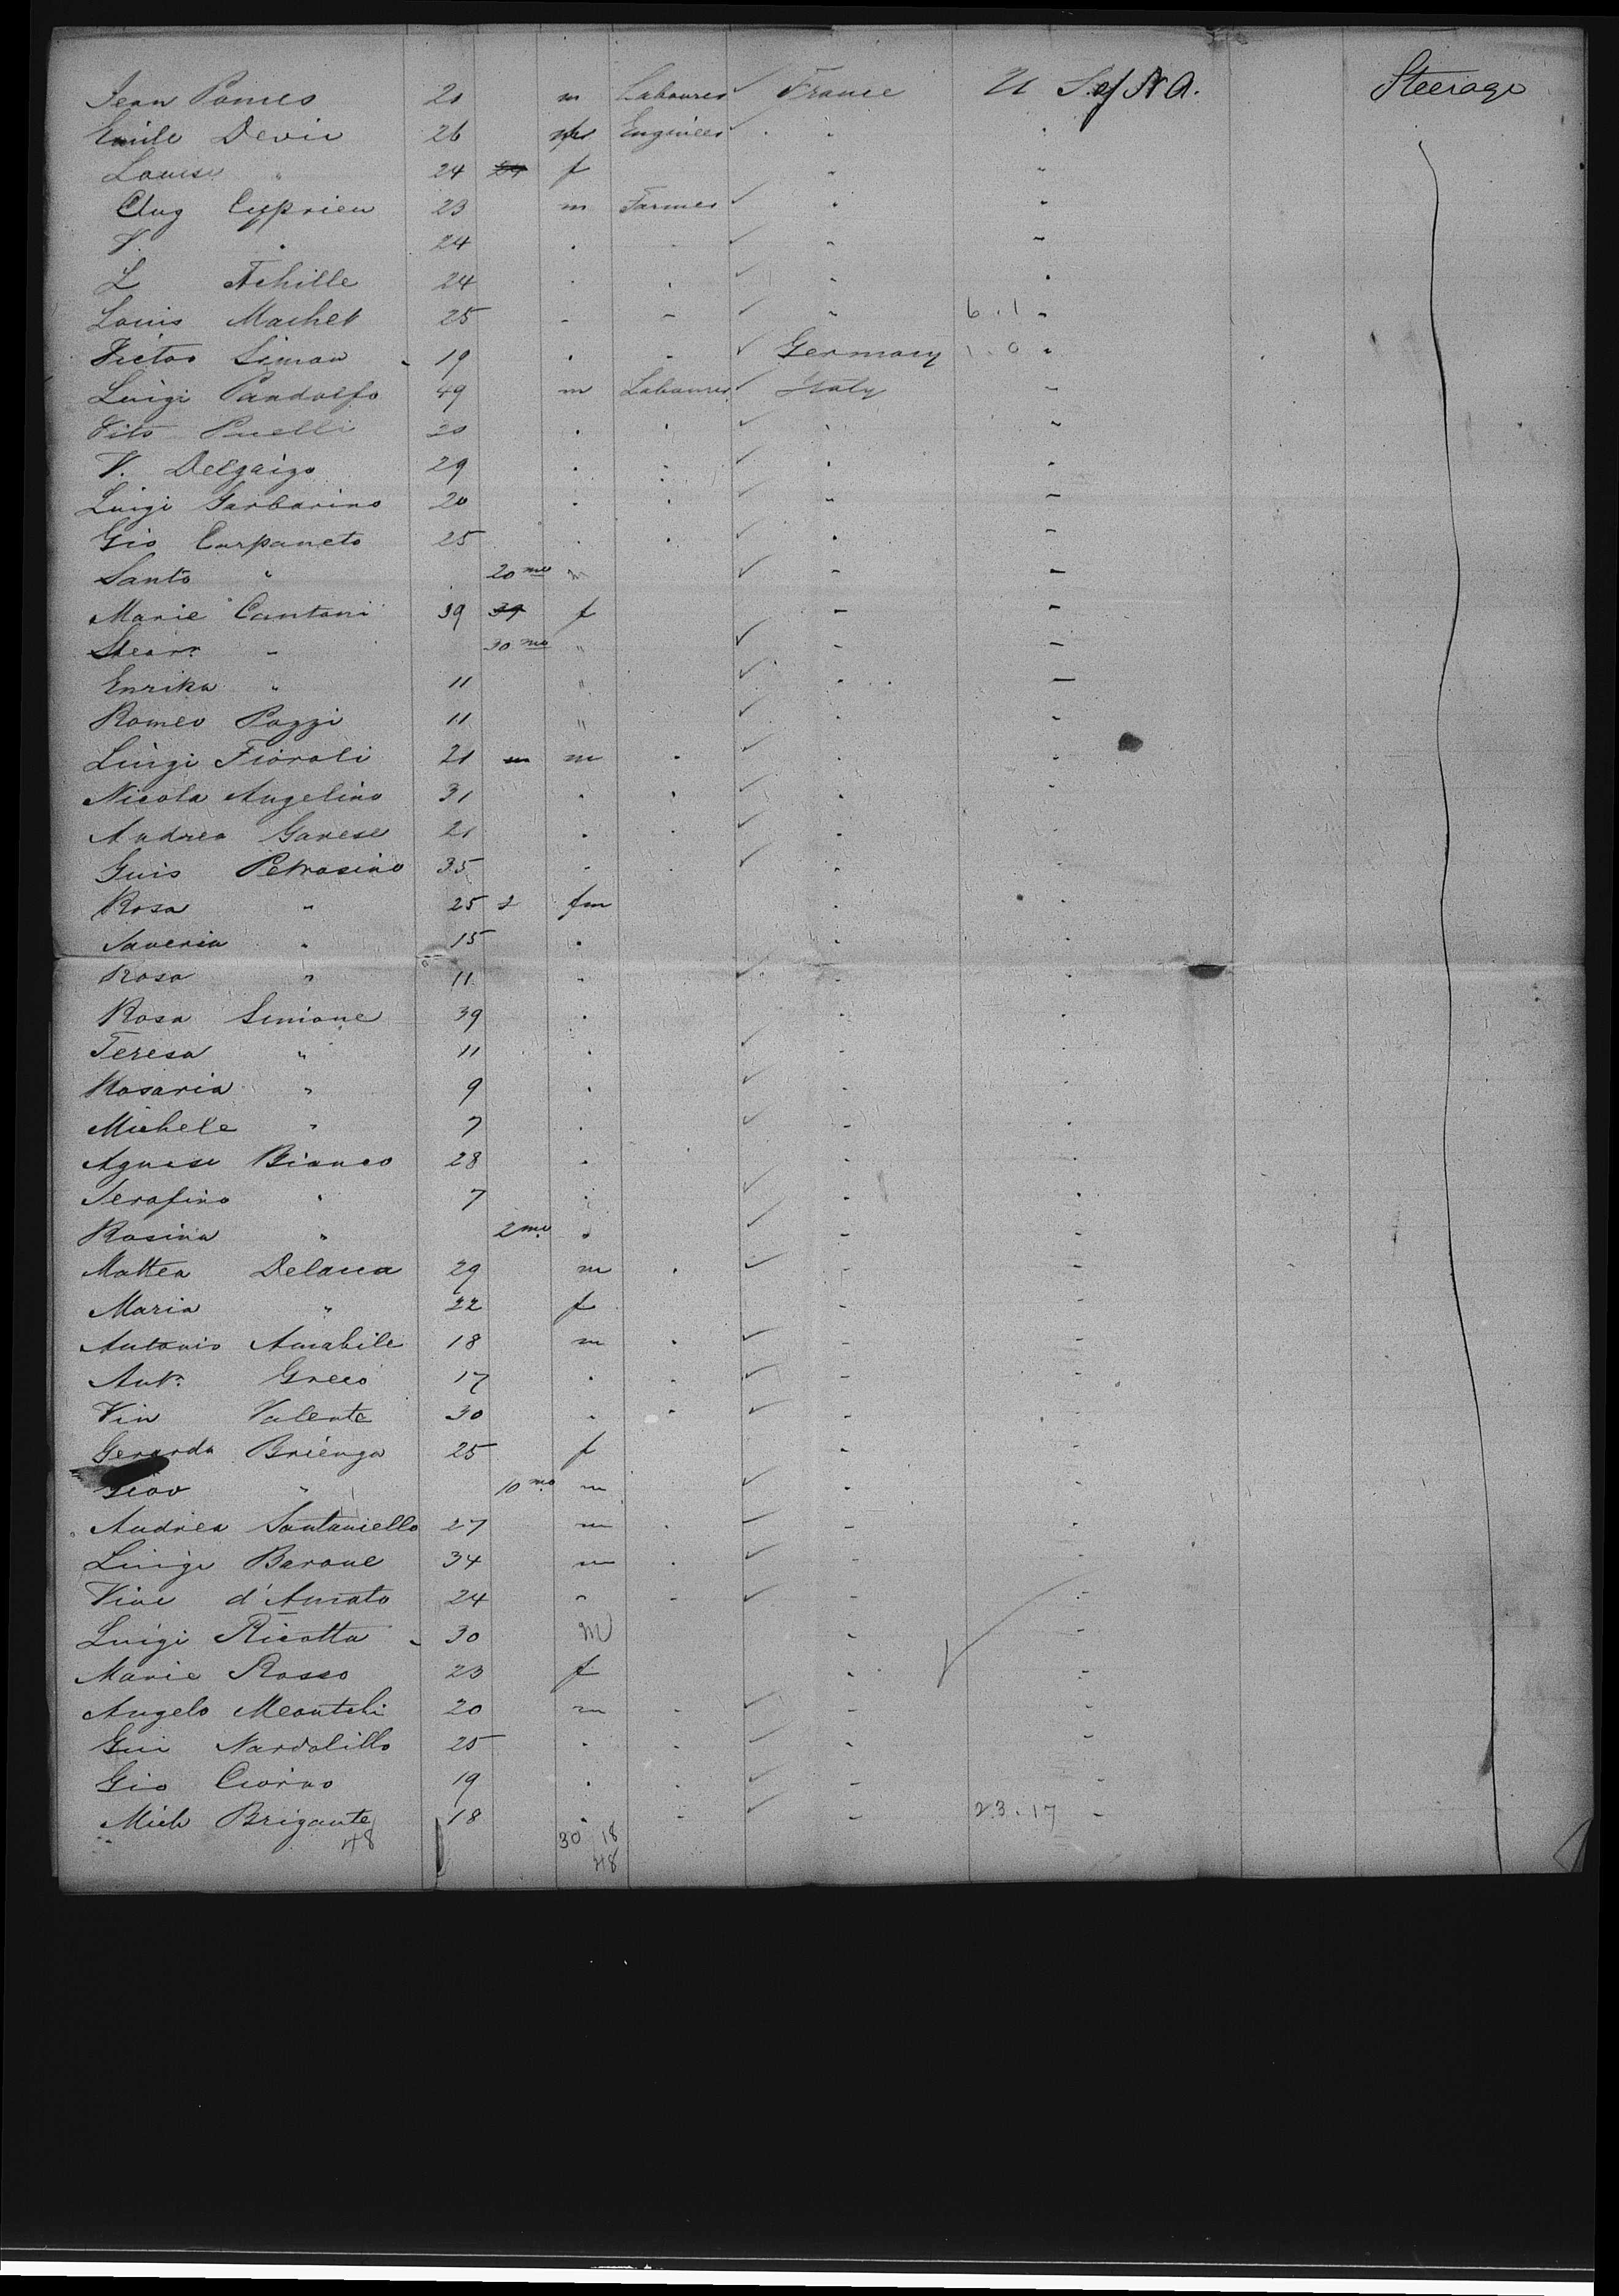 Jean Pomes 20 m Labourer ✓ France U S. of N A. Steerage
Emile Devie 26 m Engineer ✓ " "
Louise " 24 f " "
Aug Cyprien 23 m Farmer ✓ " "
V. " 24 " " ✓ " "
L Achille 24 " " ✓ " "
Louis Machet 25 " " ✓ " 6 . 1 "
Victor Simon 19 " " ✓ Germany 1 . 0 "
Luigi Pandolfo 49 m Labourer ✓ Italy "
Vito 20 " " ✓ " "
V. Delgaigo 29 " " ✓ " "
Luigi Garbarino 20 " " ✓ " "
Gio Carpaneto 25 " " ✓ " "
Santo " 20 mo m ✓ " "
Marie Cantoni 39 f " "
" 30 mo " ✓ " "
Enrika " 11 " ✓ " "
Romeo Pozzi 11 " ✓ " "
Luigi Fioroli 21 m " ✓ " "
Nicola Angelino 31 " " ✓ " "
Andrea Garese 21 " " ✓ " "
Guis Petrosino 35 " " ✓ " "
Rosa " 25 fm " "
Saveria " 15 " " "
Rosa " 11 " ✓ " "
Rosa Simione 39 " "
Teresa " 11 " ✓ " "
Rosaria " 9 " ✓ " "
Michele " 7 " ✓ " "
Agnese Bianco 28 " " "
Serafino " 7 " ✓ " "
Rosina " 2 mo " ✓ " "
Mattea Delaca 29 m " ✓ " "
Maria " 22 f " "
Antonio Amabile 18 m " ✓ " "
Ant. Greco 17 " " ✓ " "
Vin Valente 30 " " ✓ " "
Gerarda Brienga 25 f " "
Giov " 10 mo m ✓ " "
Andrea Santaniello 27 m " ✓ " "
Luigi Barone 34 m " ✓ " "
Vine d'Amato 24 " " ✓ " "
Luigi Ricotta 30 M " "
Marie Rosso 23 f " "
Angelo 20 m " ✓ " "
Gui Nardolillo 25 " " ✓ " "
Gio Ciorno 19 " " ✓ " "
Mich Brigante 18 " " ✓ " 23 . 17 "
48 30 18
48